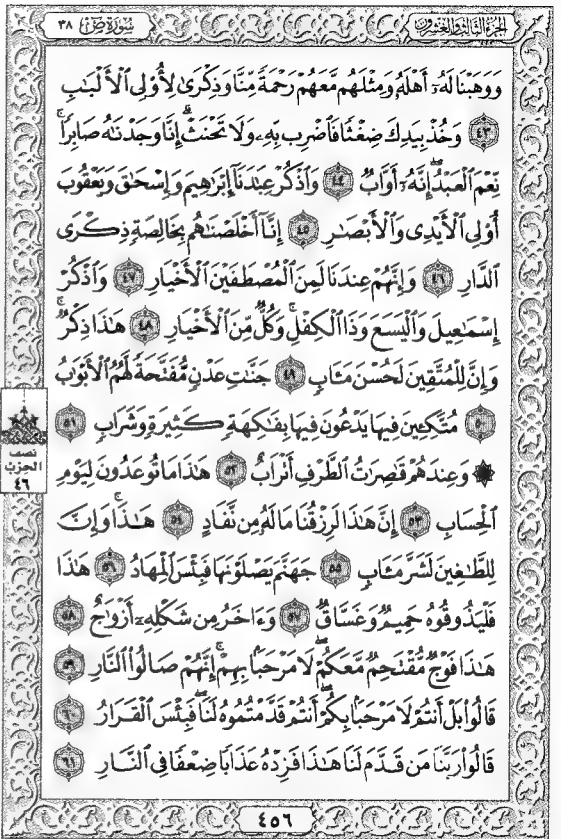 الجزء الثالث والعشرون
سورة ص ٣٨
وَوَهَبْنَا لَهُۥٓ أَهْلَهُۥ وَمِثْلَهُم مَّعَهُمْ رَحْمَةً مِّنَّا وَذِكْرَىٰ لِأُو۟لِى ٱلْأَلْبَٰبِ
٤٣ وَخُذْ بِيَدِكَ ضِغْثًا فَٱضْرِب بِّهِۦ وَلَا تَحْنَثْ ۗ إِنَّا وَجَدْنَٰهُ صَابِرًا ۚ
نِّعْمَ ٱلْعَبْدُ ۖ إِنَّهُۥٓ أَوَّابٌ ٤٤ وَٱذْكُرْ عِبَٰدَنَآ إِبْرَٰهِيمَ وَإِسْحَٰقَ وَيَعْقُوبَ
أُو۟لِى ٱلْأَيْدِى وَٱلْأَبْصَٰرِ ٤٥ إِنَّآ أَخْلَصْنَٰهُم بِخَالِصَةٍ ذِكْرَى
ٱلدَّارِ ٤٦ وَإِنَّهُمْ عِندَنَا لَمِنَ ٱلْمُصْطَفَيْنَ ٱلْأَخْيَارِ ٤٧ وَٱذْكُرْ
إِسْمَٰعِيلَ وَٱلْيَسَعَ وَذَا ٱلْكِفْلِ ۖ وَكُلٌّ مِّنَ ٱلْأَخْيَارِ ٤٨ هَٰذَا ذِكْرٌ ۚ
وَإِنَّ لِلْمُتَّقِينَ لَحُسْنَ مَـَٔابٍ ٤٩ جَنَّٰتِ عَدْنٍ مُّفَتَّحَةً لَّهُمُ ٱلْأَبْوَٰبُ
٥٠ مُتَّكِـِٔينَ فِيهَا يَدْعُونَ فِيهَا بِفَٰكِهَةٍ كَثِيرَةٍ وَشَرَابٍ ٥١
۞ وَعِندَهُمْ قَٰصِرَٰتُ ٱلطَّرْفِ أَتْرَابٌ ٥٢ هَٰذَا مَا تُوعَدُونَ لِيَوْمِ
ٱلْحِسَابِ ٥٣ إِنَّ هَٰذَا لَرِزْقُنَا مَا لَهُۥ مِن نَّفَادٍ ٥٤ هَٰذَا ۚ وَإِنَّ
لِلطَّٰغِينَ لَشَرَّ مَـَٔابٍ ٥٥ جَهَنَّمَ يَصْلَوْنَهَا فَبِئْسَ ٱلْمِهَادُ ٥٦ هَٰذَا
فَلْيَذُوقُوهُ حَمِيمٌ وَغَسَّاقٌ ٥٧ وَءَاخَرُ مِن شَكْلِهِۦٓ أَزْوَٰجٌ ٥٨
هَٰذَا فَوْجٌ مُّقْتَحِمٌ مَّعَكُمْ ۖ لَا مَرْحَبًۢا بِهِمْ ۚ إِنَّهُمْ صَالُوا۟ ٱلنَّارِ ٥٩
قَالُوا۟ بَلْ أَنتُمْ لَا مَرْحَبًۢا بِكُمْ ۖ أَنتُمْ قَدَّمْتُمُوهُ لَنَا ۖ فَبِئْسَ ٱلْقَرَارُ ٦٠
قَالُوا۟ رَبَّنَا مَن قَدَّمَ لَنَا هَٰذَا فَزِدْهُ عَذَابًا ضِعْفًا فِى ٱلنَّارِ ٦١
نصف
الحزب
٤٦
٤٥٦